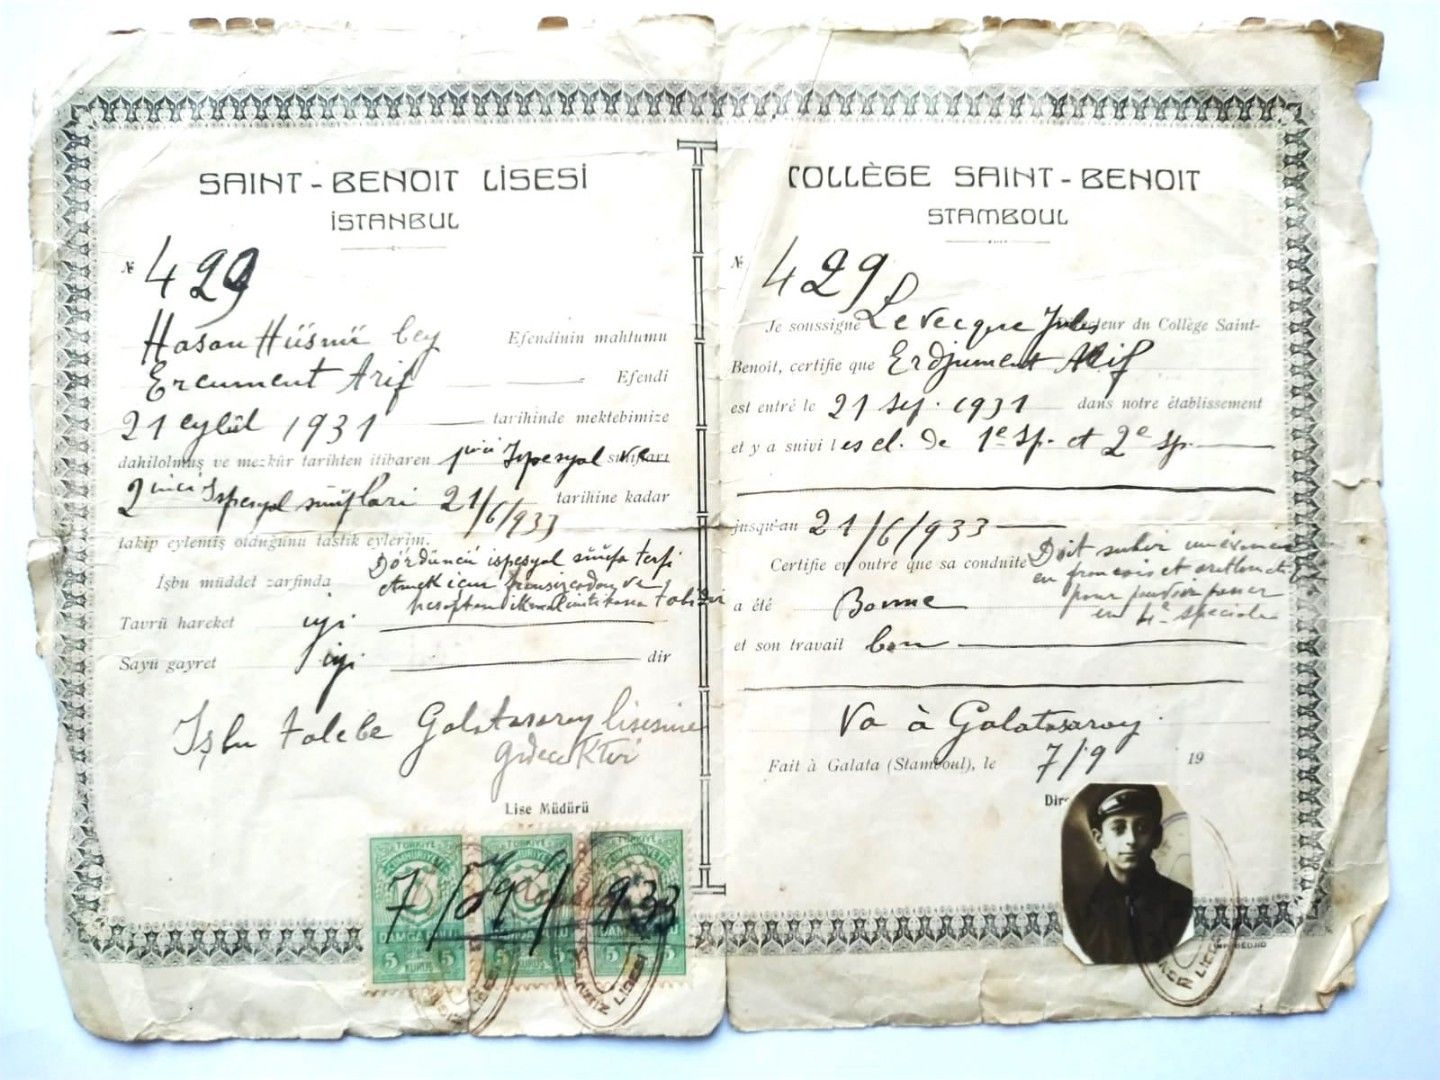 SAINT - BENOIT LİSESİ
İSTANBUL
№ 429
Hasan Hüsnü bey Efendinin mahtumu
Ercument Arif Efendi
21 eylûl 1931 tarihinde mektebimize
dahilolmuş ve mezkûr tarihten itibaren birinci Ispesyal ve sınıfları
2 inci Ispesyal sınıfları 21/6/933 tarihine kadar
takip eylemiş olduğunu tastik eylerim.
Dördüncü ispesyal sınıfa terfi
İşbu müddet zarfında etmek için fransızcadan ve
hesaptan ikmal imtihanına tabidir
Tavrü hareket iyi
Sayü gayret iyi dir
Işbu talebe Galatasaray lisesine
gidecektir
Lise Müdürü
TÜRKİYE CUMHURİYETİ
DAMGA PULU
5 KURUŞ 5
7/9/1933
COLLÈGE SAINT - BENOIT
STAMBOUL
№ 429
Je soussigné Levecque Jules Directeur du Collège Saint-
Benoit, certifie que Erdjument Arif
est entré le 21 Sep. 1931 dans notre établissement
et y a suivi les cl. de 1e Sp. et 2e Sp.
jusqu'au 21/6/933
Certifie en outre que sa conduite Doit subir un examen
en français et arithmét.
a été Bonne pour pouvoir passer
en 4e spéciale
et son travail bon
Va à Galatasaray.
Fait à Galata (Stamboul), le 7/9 19
LISESİ